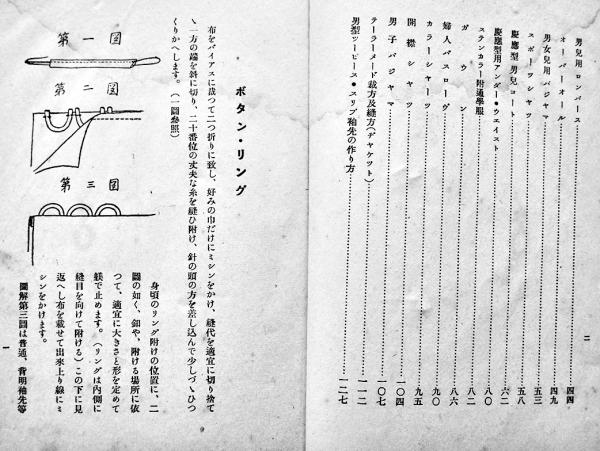 二
男兒用ロンパース…………四四
オーバーオール…………四九
男女兒用パジヤマ…………五三
スポーツシヤツ…………五八
慶應型男兒コート…………六二
慶應型用アンダー・ウエイスト…………八〇
ステンカラー附通學服…………八二
ガウン…………八六
婦人バスローヴ…………九〇
カラーシヤーツ…………九五
開襟シヤツ…………一〇四
男子パジヤマ…………一〇七
テーラーメード裁方及縫方(ヂヤケツト)…………一一二
男型ツーピース・スリブ釉先の作り方…………一二七
ボタン・リング
布をバイアスに裁つて二つ折りに致し、好みの巾だけにミシンをかけ、縫代を適宜に切り捨て
ゝ一方の端を斜に切り、二十番位の丈夫な糸を縫ひ附け、針の頭の方を差し込んで少しづゝひつ
くりかへします。(一圖參照)
第一図
第二図
第三図
身頃のリング附けの位置に、二
圖の如く、釦や、附ける場所に依
つて、適宜に大きさと形を定めて
躾で止めます。(リングは内側に
縫目を向けて附ける)この下に見
返へし布を載せて出來上り線にミ
シンをかけます。
圖解第三圖は普通、背明袖先等
一